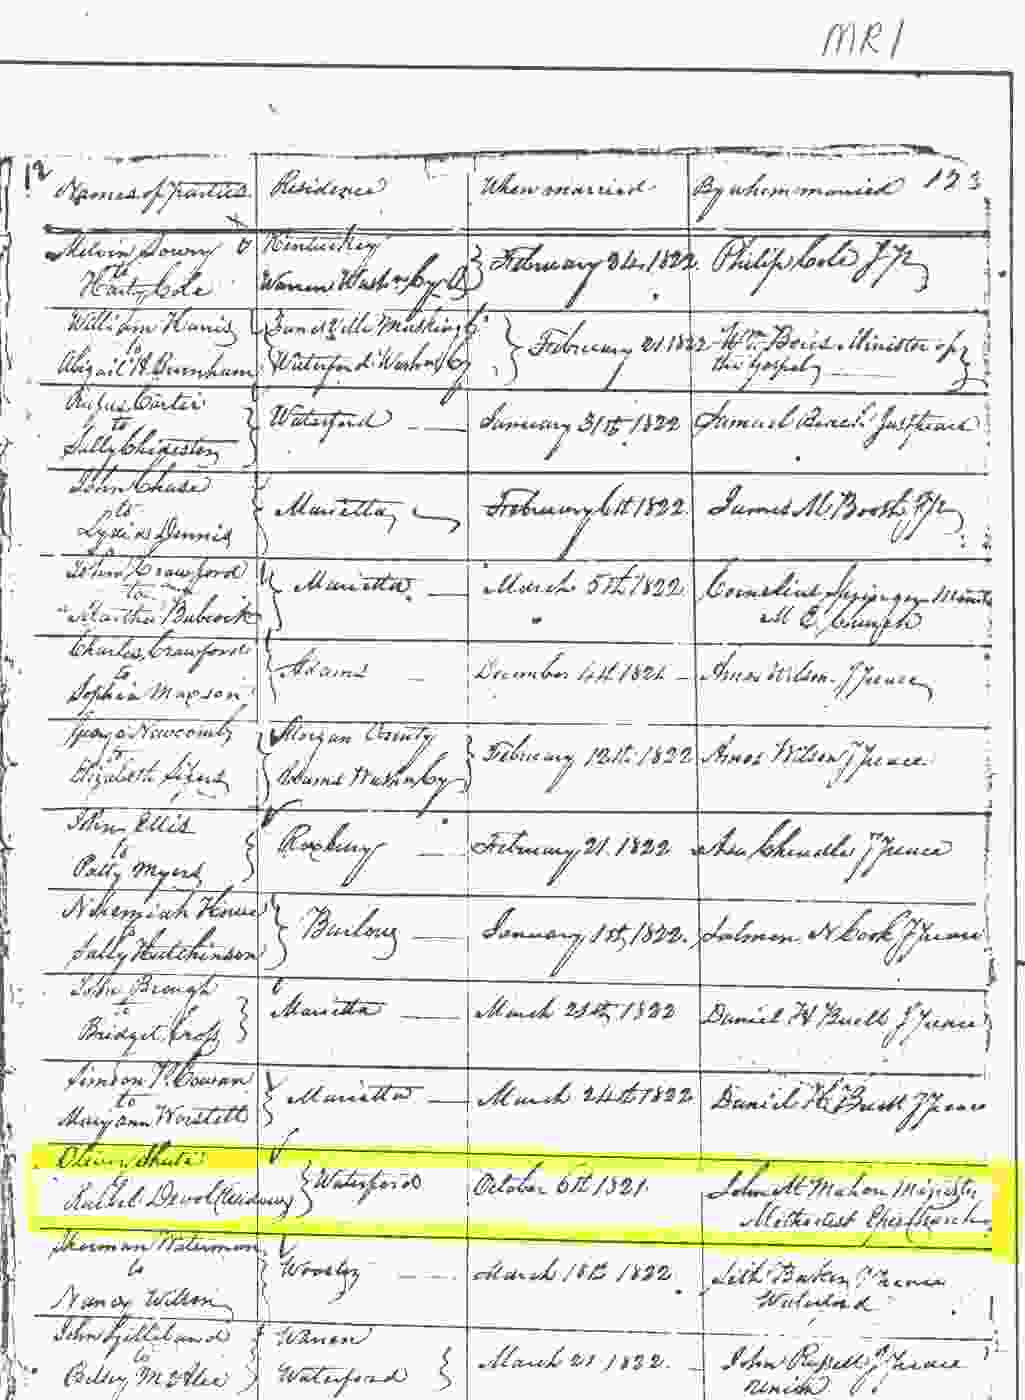 MR1
12
Names of Parties Residence When married By whom married 123
Melvin Lowry Kentucky
to February 24, 1822 Philip Cole J P
Harty Cole Warren Wash
William Harris Zanesville Muskingh
to February 21 1822 Wm Minister of
Abigail H. Burnham Waterford Wash Cy the Gospel
Rufus Carter
to Waterford January 31th 1822 Samuel
Sally Chideston
John Chase
to Marietta February 6th 1822 James M Booth
Lydia Dennis
John Crawford
to Marietta March 5th 1822 Cornelius Springer
Martha Babcock M E Church
Charles Crawford
to Adams December 4th 1821 Amos Wilson J Peace
Sophia Maxson
George Newcomb Morgan County
to February 12th 1822 Amos Wilson J Peace
Elizabeth Adams Wash Cy
John Ellis
to Roxbury February 21. 1822 Asa J Peace
Patty Myers
Nehemiah
to January 1st, 1822. Salmon N Cook J Peace
Sally Hutchinson
John Brough
to Marietta March 1822 Daniel H Buell J Peace
Bridget Cross
Simeon P. Cowan
to Marietta March 24th 1822 Daniel H. Buell J Peace
Maryann Worstell
Oliver Shute
Waterford October 6th 1821. John McMahon Minister
Rachel Devol (Widow) Methodist Epis Church
Sherman Waterman
to Wooster March 18th 1822. Seth Baker J Peace
Nancy Wilson Waterford
John Gilliland Warren
to March 21 1822. John Russell J Peace
Betsey McAtee Waterford